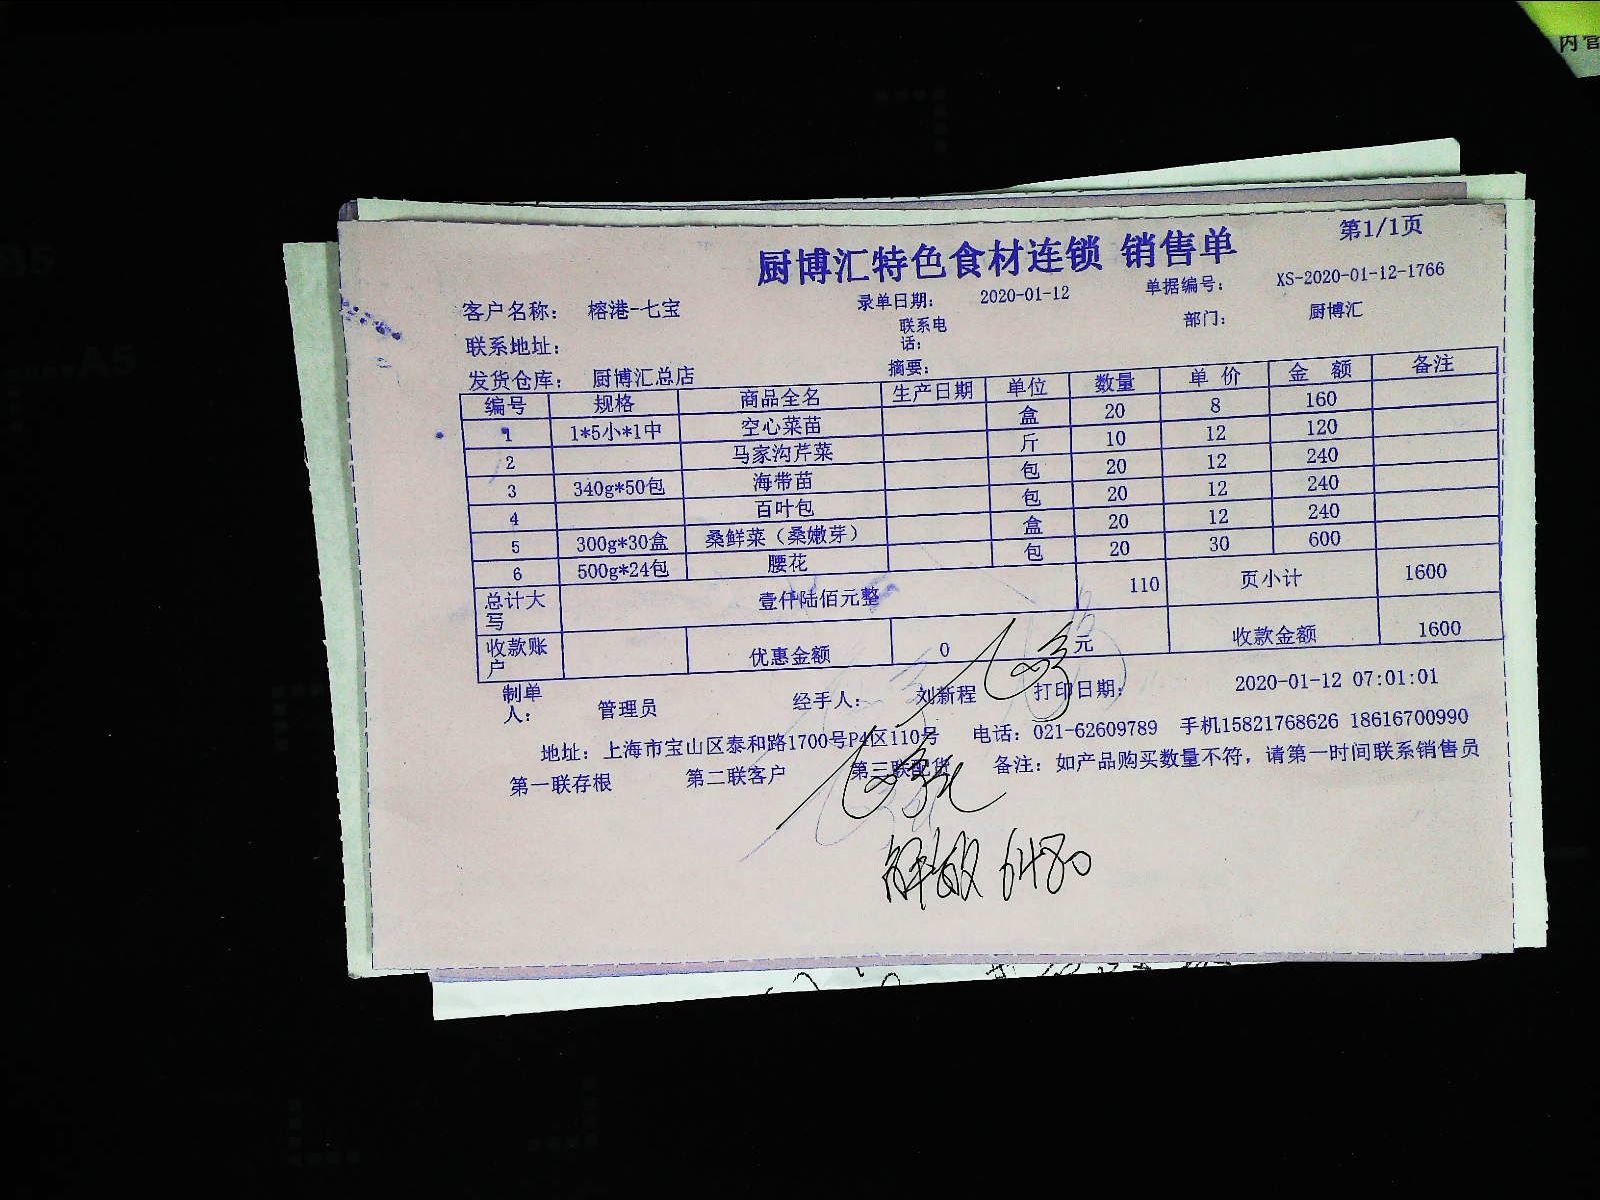 内管
第1/1页
厨博汇特色食材连锁 销售单
客户名称： 榕港-七宝 录单日期： 2020-01-12 单据编号： XS-2020-01-12-1766
联系地址： 联系电话： 部门： 厨博汇
发货仓库： 厨博汇总店 摘要：
编号 规格 商品全名 生产日期 单位 数量 单价 金额 备注
1 1*5小*1中 空心菜苗 盒 20 8 160
2 马家沟芹菜 斤 10 12 120
3 340g*50包 海带苗 包 20 12 240
4 百叶包 包 20 12 240
5 300g*30盒 桑鲜菜（桑嫩芽） 盒 20 12 240
6 500g*24包 腰花 包 20 30 600
总计大写 壹仟陆佰元整 110 页小计 1600
收款账户 优惠金额 0 元 收款金额 1600
制单人： 管理员 经手人： 刘新程 打印日期： 2020-01-12 07:01:01
地址：上海市宝山区泰和路1700号P4区110号 电话：021-62609789 手机15821768626 18616700990
第一联存根 第二联客户 第三联配货 备注：如产品购买数量不符，请第一时间联系销售员